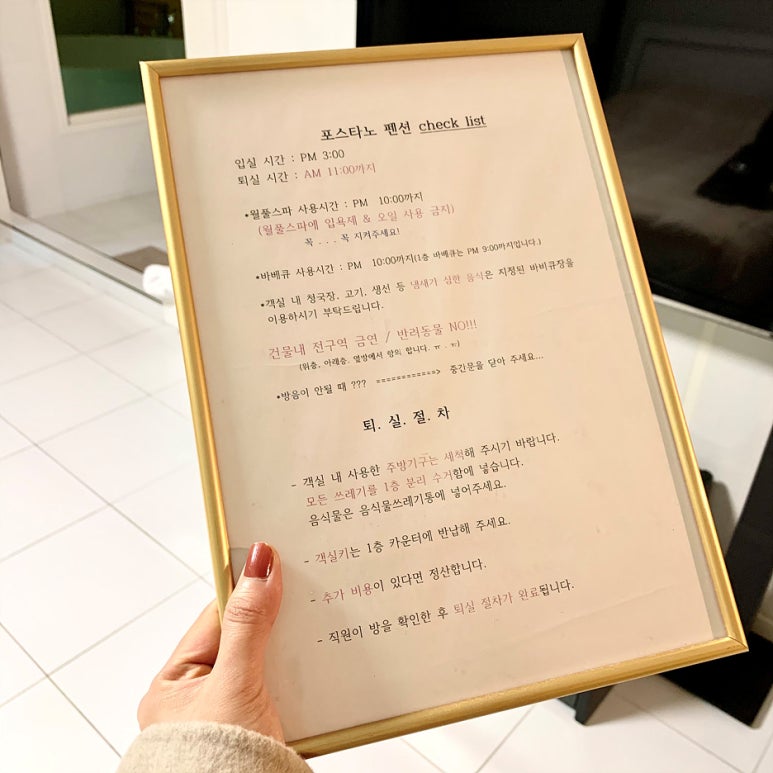 포스타노 펜션 check list
입실 시간 : PM 3:00
퇴실 시간 : AM 11:00까지
*월풀스파 사용시간 : PM 10:00까지
(월풀스파에 입욕제 & 오일 사용 금지)
꼭 . . . 꼭 지켜주세요!
*바베큐 사용시간 : PM 10:00까지(1층 바베큐는 PM 9:00까지입니다.)
*객실 내 청국장, 고기, 생선 등 냄새가 심한 음식은 지정된 바비큐장을
이용하시기 부탁드립니다.
건물내 전구역 금연 / 반려동물 NO!!!
(위층, 아래층, 옆방에서 항의 합니다. ㅠ . ㅠ)
*방음이 안될 때 ??? ============> 중간문을 닫아 주세요...
퇴. 실. 절. 차
- 객실 내 사용한 주방기구는 세척해 주시기 바랍니다.
모든 쓰레기를 1층 분리 수거함에 넣습니다.
음식물은 음식물쓰레기통에 넣어주세요.
- 객실키는 1층 카운터에 반납해 주세요.
- 추가 비용이 있다면 정산합니다.
- 직원이 방을 확인한 후 퇴실 절차가 완료됩니다.